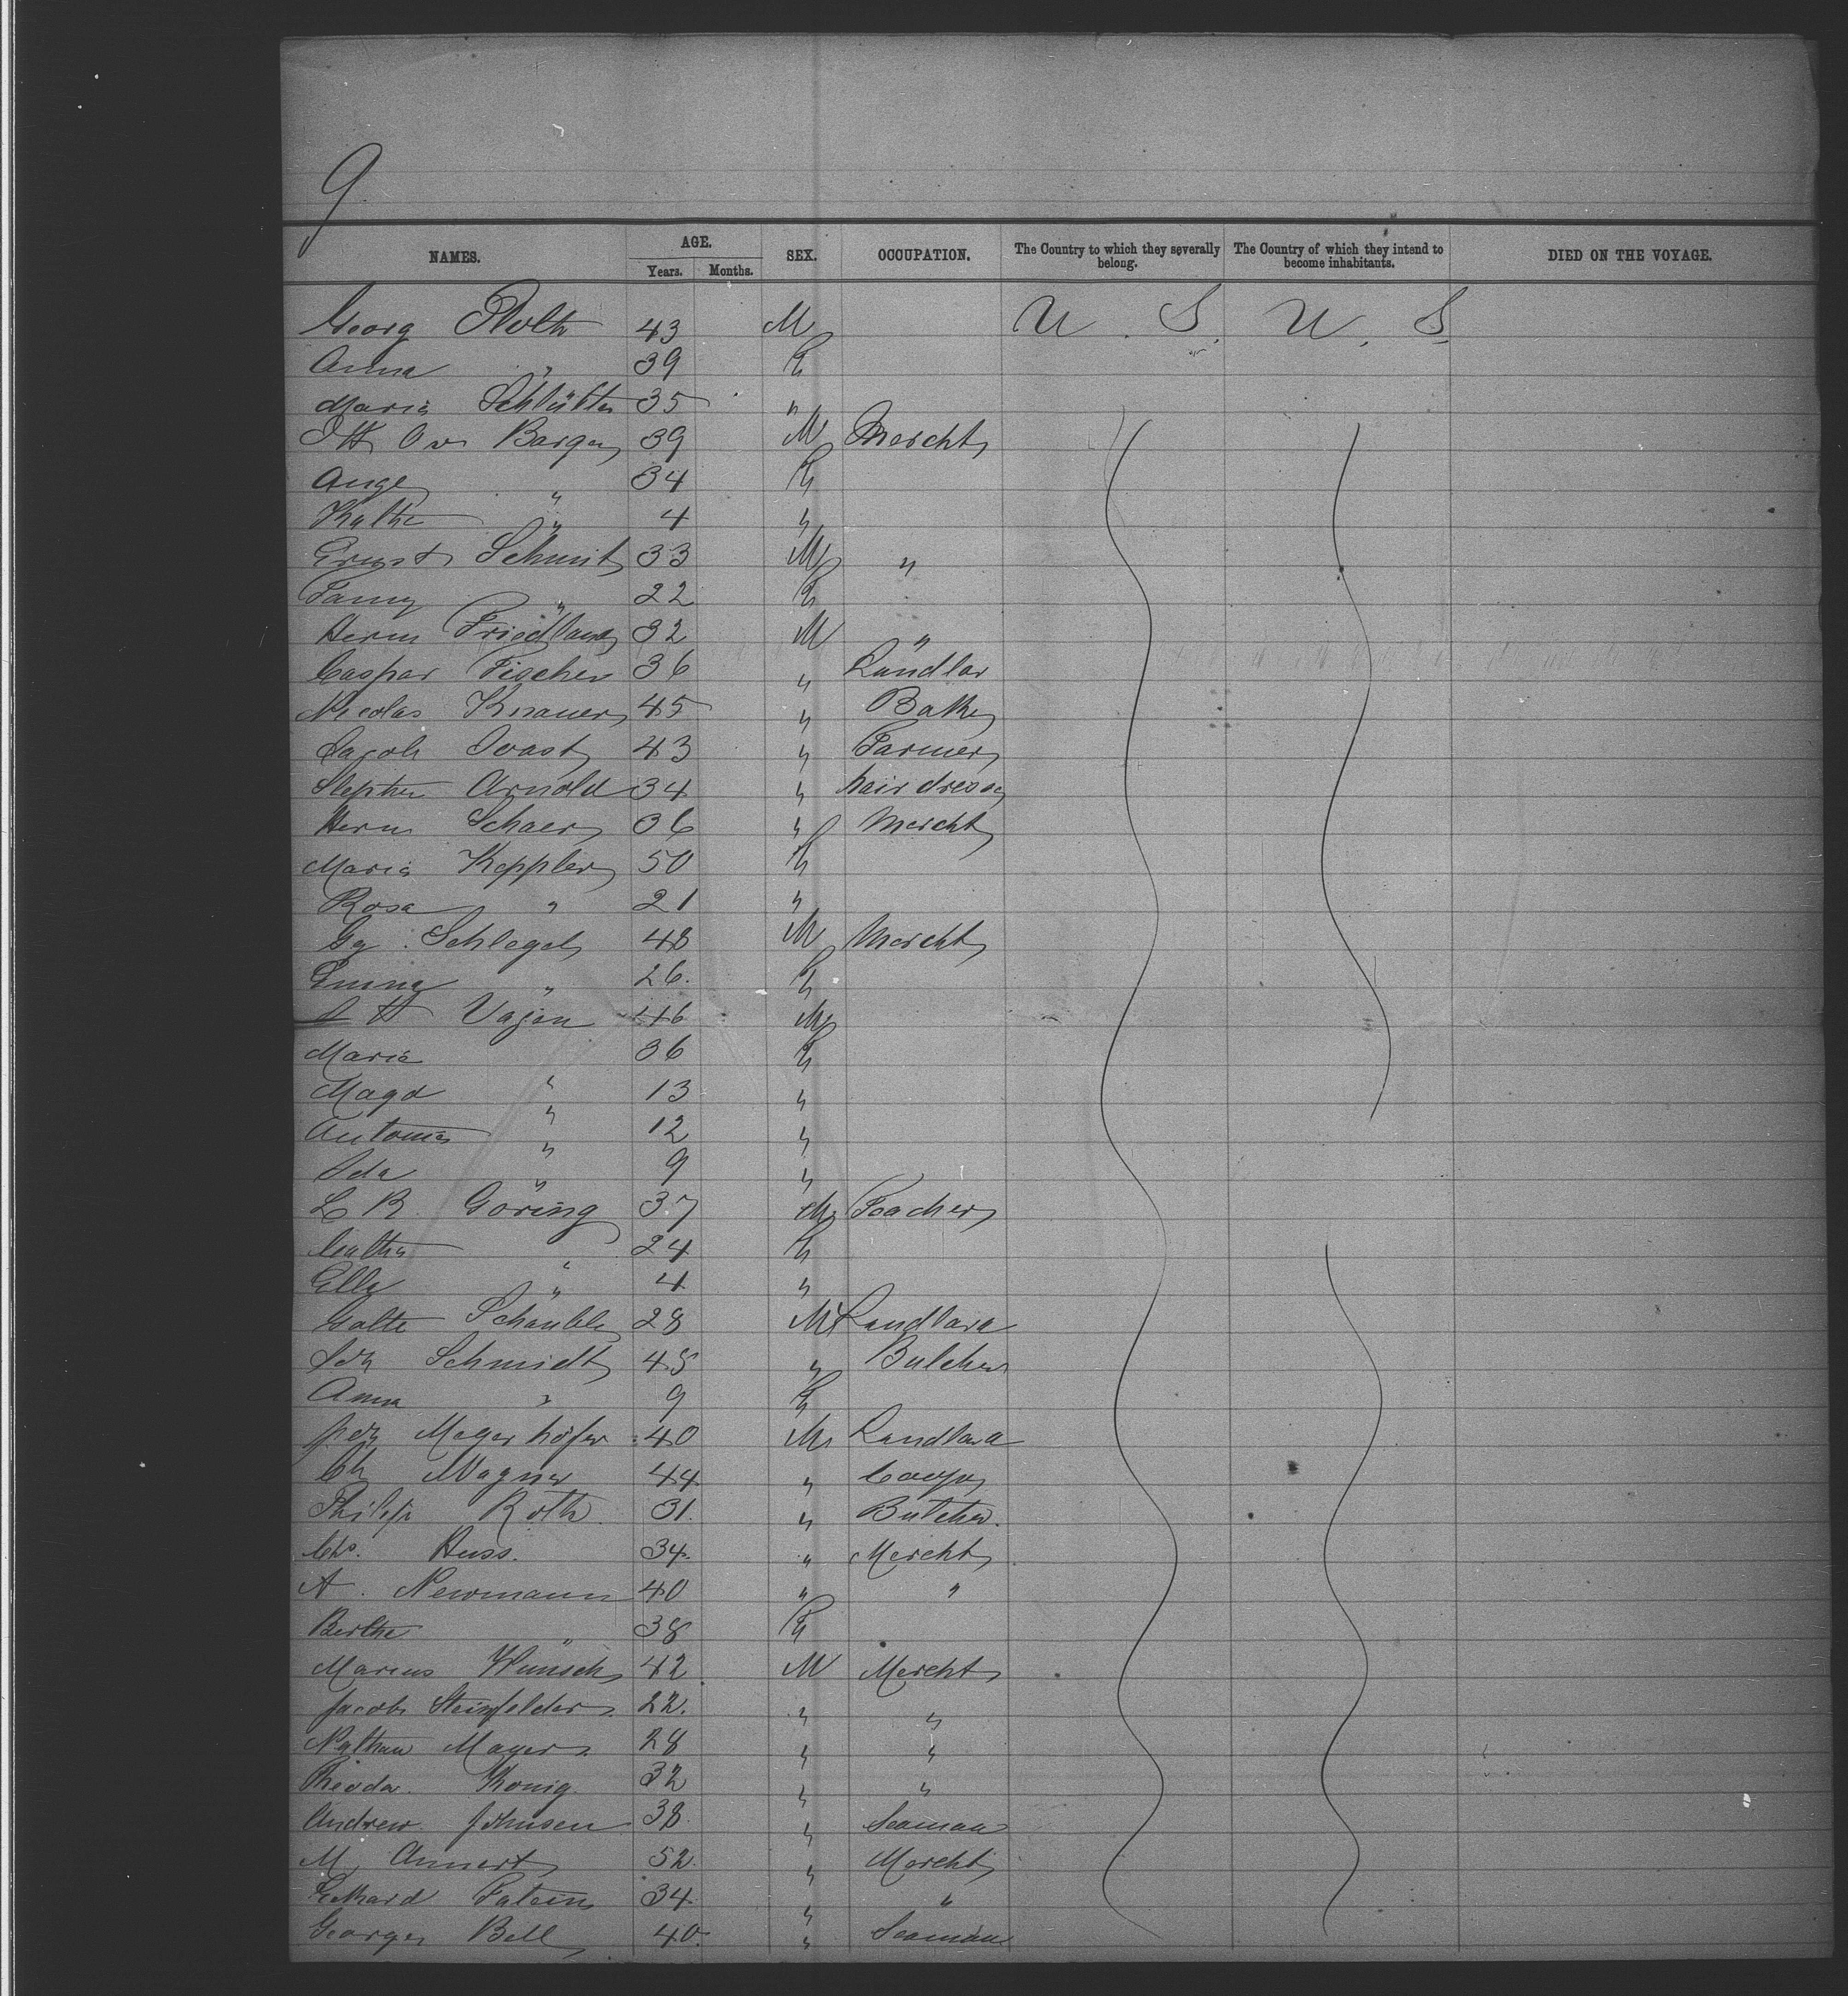 9
NAMES. AGE. SEX. OCCUPATION. The Country to which they severally belong. The Country of which they intend to become inhabitants. DIED ON THE VOYAGE.
Years. Months.
Georg 43 M U. S. U. S.
Anna " 39
Maria Schlüter 35 "
Bargen 39 M Mercht
34
Kathe " 4 "
Ernst Schmit 33 M "
Fanny " 22
Herm Friedland 32 M "
Caspar Fischer 36 " Landlor
Nicolas Knauer 45 " Baker
Jacob 43 " Farmer
Stephen Arnold 34 " hairdresser
Herm Schaer 36 " Mercht
Maria Keppler 50
Rosa " 21 "
Gg. Schlegel 48 M Mercht
Emma " 26.
H Vajen 46 M
Maria 36
Magd " 13 "
Antonie " 12 "
Ida " 9 "
L R. Göring 37 M Teacher
24
Ella " 4 "
Schäuble 28 M Landlord
Joh Schmidt 45 " Butcher
Anna " 9
Mayerhöfer 40 M Landlord
Ch Wagner 44 "
Philip Roth. 31. " Butcher.
Chs. Huss. 34. " Mercht
A. Newmann 40 " "
Berthe " 38
Marcus Wunsch 42 M Mercht
Jacob Steinfelder 22. " "
Nathan Mayer 28 " "
Theodor. Konig. 32 " "
Andrew Johnsen 38. " Seaman
M Annert 52. " Mercht
34. " "
George Bell 40. " Seaman